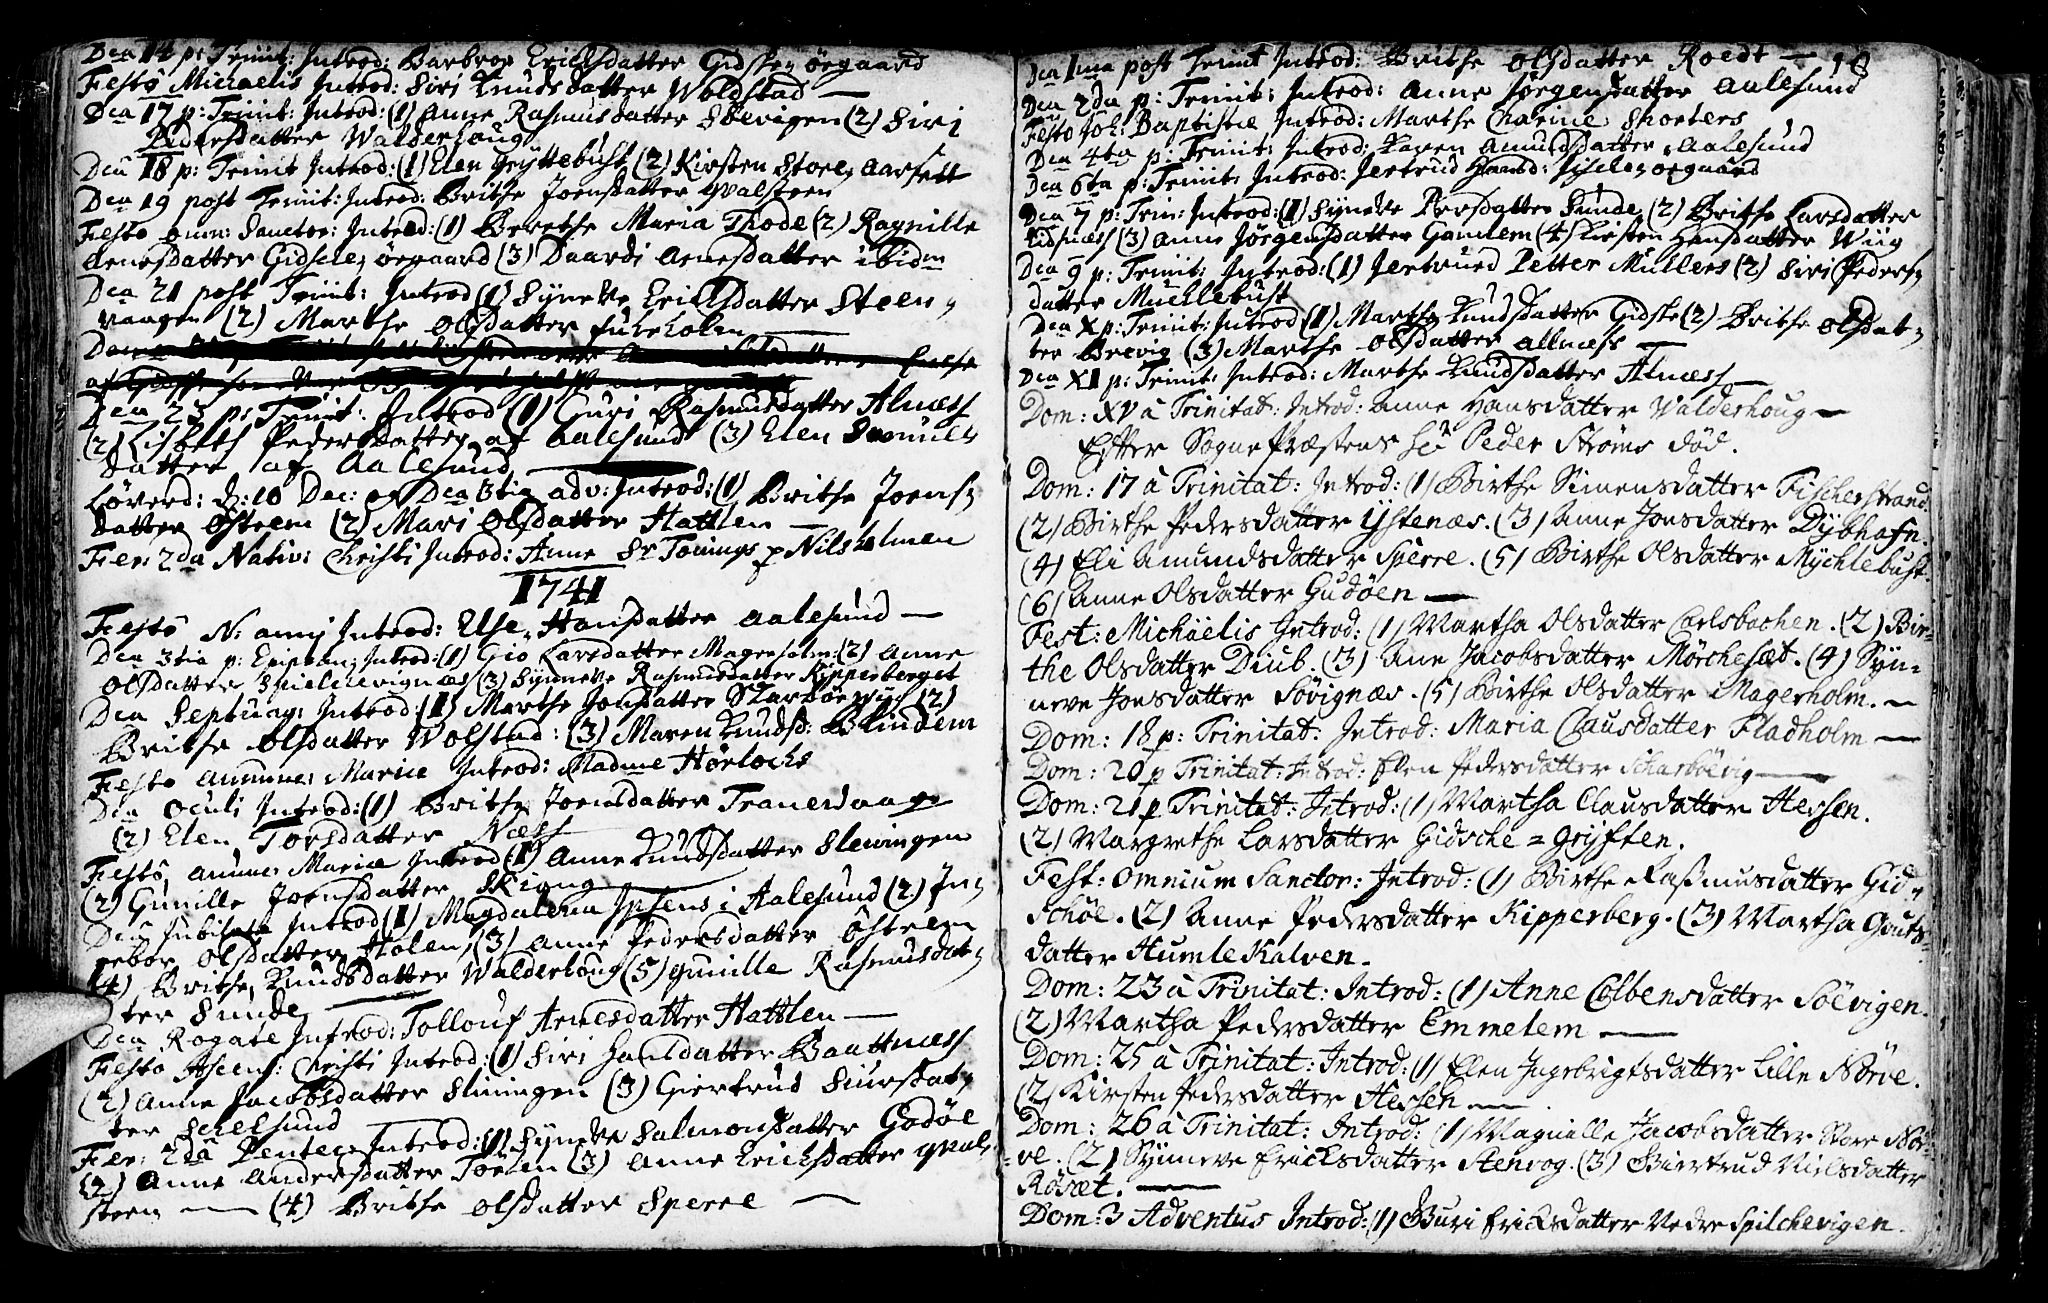 Dca 14 p: Trinit: Introd: Barbroe Ericksdatter Gidske, øegaard
Festo Michaelis Introd: Siri Knudsdatter Woldstad —
Dca 17 p: Trinit: Introd: (1) Anne Rasmusdatter Søevigen (2) Siri
Pedersdatter Walderhoug
Dca 18 p: Trinit Introd: (1) Elen Gryttebust (2) Kirsten Store, Aarsætt
Dca 19 post Trinit: Introd: Brithe Joensdatter qvalsteen
Festo omn: Sanctor: Introd: (1) Berethe Maria Thode (2) Ragnille
Arnesdatter Gidske, øegaard (3) Daardi Arnesdatter ibidm
Dca 21 post Trinit: Introd (1) Synneve Ericksdatter Steen,
vaagen (2) Marthe Olsdatter Fuheholm —
Dca 23 p: Trinit: Introd (1) Guri Rasmusdatter Alness
(2) Lisbeth Pedersdatter af Aalesund (3) Elen Samuels
datter af Aalesund —
Løverd: d: 10 Dec: og Dca 3tia adv: Introd: (1) Brithe Joens,
datter Østrem (2) Mari Olsdatter Hattlen —
Fer: 2da Nativ: Christi Introd: Anne Sr Tønings p Nilsholmen
1741
Festo N: anni Introd: Else Hansdatter Aalesund —
Dca 3tia p: Epiphan: Introd: (1) Gio Larsdatter Magerholm (2) Anne
Olsdatter Spielchevignæs (3) Synneve Rasmusdatter Kipperberget
Dca Septung: Introd: (1) Marthe Jonsdatter Skarbøevig (2)
Brithe Olsdatter Wolstad: (3) Maren Knudsd: Blindem
Festo annunc: Mariæ Introd: Madme Hørlochs
Dca Oculi Introd: (1) Brithe Joensdatter Tranevaag
(2) Elen Torsdatter Næss
Festo annunc: Mariæ Introd (1) Anne Knudsdatter Slewingen
(2) Gunille Joensdatter Skiong
Dca Jubilate Introd (1) Magdalena Jpsens i Aalesund (2) In,
gebor Olsdatter Holen (3) Anne Pedersdatter Østrem
(4) Brithe Knudsdatter Walderhoug (5) Gunille Rasmusdat,
ter Sunde
Dca Rogate Introd: Tollouf Arnesdatter Hattlen —
Festo Ascens: Christi Introd: (1) Siri Hansdatter Baattnæss
(2) Anne Jacobsdatter Slinningen (3) Giertrud Siursdat,
ter Scielsund
Fer: 2da Pentec: Introd: (1) Synneve Salmonsdatter Godøe
(2) Anne Andersdatter Torlen (3) Anne Ericksdatter qval,
steen — (4) Brithe Olsdatter Sperre —
Dca 1ma post Trinit Introd: Brithe Olsdatter Roedt — 18
Dca 2da p: Trinit: Introd: Anne Jørgensdatter Aalesund
Festo Joh: Baptistæ Introd: Marthe Chatrine Shorters
Dca 4ta p: Trinit: Introd: Karen Amundsdatter Aalesund
Dca 6ta p: Trinit: Introd: Jertrud Hansd: Giske, øegaard
Dca 7 p: Trin: Introd: (1) Synneve Persdatter Sunde (2) Brithe Larsdatter
Eidsnæss (3) Anne Jørgensdatter Gamlem (4) Kirsten Hansdatter Wiig
Dca 9 p: Trinit: Introd: (1) Jertrued Petter Müllers (2) Siri Peders,
datter Mucklebust
Dca X p: Trinit: Introd (1) Marthe Knudsdatter Gidske (2) Brithe Olsdat,
ter Brevig (3) Marthe Olsdatter Allnæss
Dca XI p: Trinit: Introd: Marthe Knudsdatter Alness
Dom: XV à Trinitat: Introd: Anne Hansdatter Valderhoug —
Efter Sogne Præstens Hr Peder Strøms død.
Dom: 17 à Trinitat: Introd: (1) Birthe Simensdatter Fischerstrand.
(2) Birthe Pedersdatter Ystenæs. (3) Anne Jonsdatter Dybhafn.
(4) Eli Amundsdatter Sperre. (5) Birthe Olsdatter Mychlebust.
(6) Anne Olsdatter Gudøen —
Fest: Michäelis Introd: (1) Martha Olsdatter Carlsbachen. (2) Bir=
the Olsdatter Diub. (3) Ane Jacobsdatter Mørchesæt. (4) Syn=
neve Jonsdatter Søvignæs. (5) Birthe Olsdatter Magerholm. —
Dom: 18 p: Trinitat: Introd: Maria Clausdatter Fladholm —
Dom: 20 p Trinitat: Introd: Elen Pedersdatter Scharbøevig —
Dom: 21 p Trinitat: Introd: (1) Martha Clausdatter Hessen.
(2) Margrethe Larsdatter Gidsche = Gryften.
Fest: Omnium Sanctor: Introd: (1) Birthe Raßmusdatter Gid=
schøe. (2) Anne Pedersdatter Kipperberg. (3) Martha Gouts=
datter Humlekalven.
Dom: 23 à Trinitat: Introd: (1) Anne Colbensdatter Søevigen.
(2) Martha Pedersdatter Emmelem —
Dom: 25 à Trinitat: Introd: (1) Elen Ingebrigtsdatter Lille Nørve.
(2) Kirsten Pedersdatter Hessen —
Dom: 26 à Trinitat: Introd: (1) Magnille Jacobsdatter Store Nør=
ve. (2) Synneve Ericksdatter Stenvog. (3) Giertrud Nielsdatter
Røsæt. —
Dom: 3 Adventus Introd: (1) Guri Ericksdatter Vedre Spilchevigen.